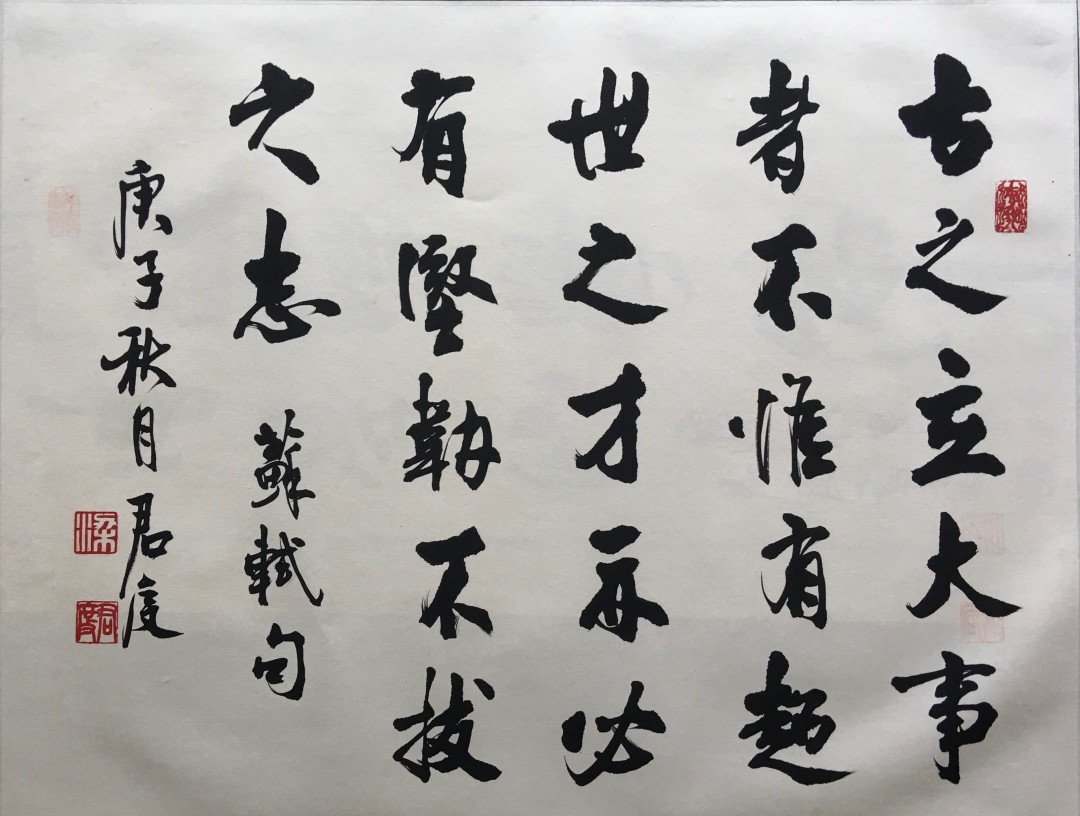 古之立大事
者不惟有超
世之才亦必
有堅韌不拔
之志 蘇軾句
庚子秋月君度